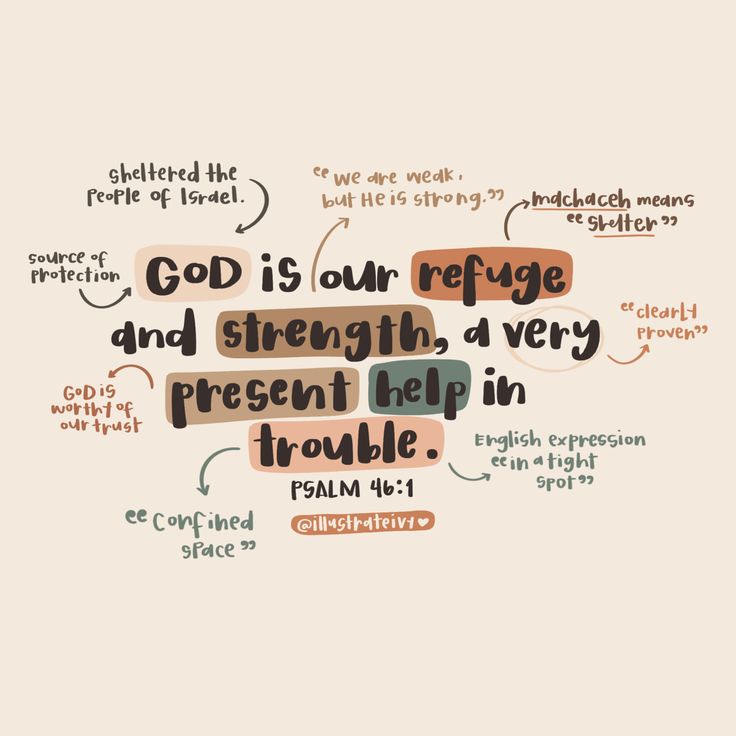 sheltered the
people of Israel.
“We are weak,
but He is strong.”
machaceh means
“shelter”
source of
protection
GOD is our refuge
and strength, a very
present help in
trouble.
“clearly
proven”
GOD is
worthy of
our trust
English expression
“in a tight
spot”
PSALM 46:1
“Confined
space”
@illustrateivy